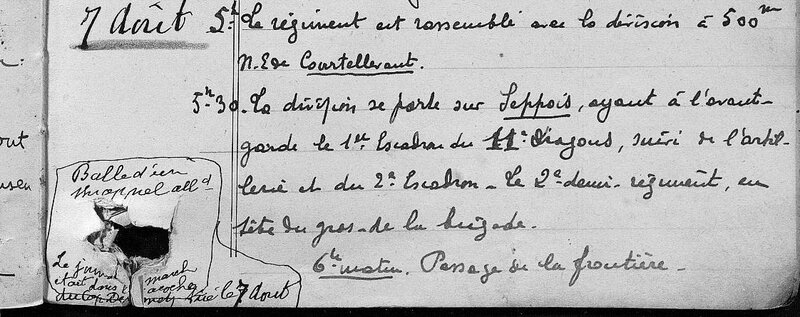 7 Août
5h Le régiment est rassemblé avec la division à 500m
N.E de Courtelevant.
5h30. La division se porte sur Seppois, ayant à l'avant-
garde le 1er Escadron du 11e Dragons, suivi de l'artil-
lerie et du 2e Escadron - Le 2e demi-régiment, en
tête du gros de la brigade.
6h matin. Passage de la frontière -
Balle d'un
all d
Le
était dans
le 7 Août